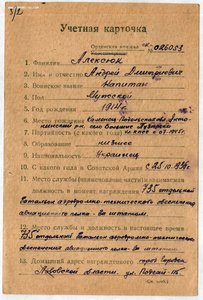 3/2
Учетная карточка
Орденская книжка № 026053
1. Фамилия Алексюк
2. Имя и отчество Андрей Дмитриевич
3. Воинское звание Капитан
4. Пол Мужской
5. Год рождения 1914 г.
6. Место рождения
7. Партийность (с какого года) с 1945 г.
8. Образование низшее
9. Национальность Украинец
10. С какого года в Советской Армии С 25.10.1936 г.
11. Место службы (наименование части) и занимаемая
должность в момент награждения 735 отдельный
Батальон аэродромно-технического обеспечения
авиационного полка.
12. Место службы и должность в настоящее время
735 отдельный Батальон аэродромно-технического
обеспечения авиационного полка.
13. Домашний адрес награжденного город
Львовской области. ул.